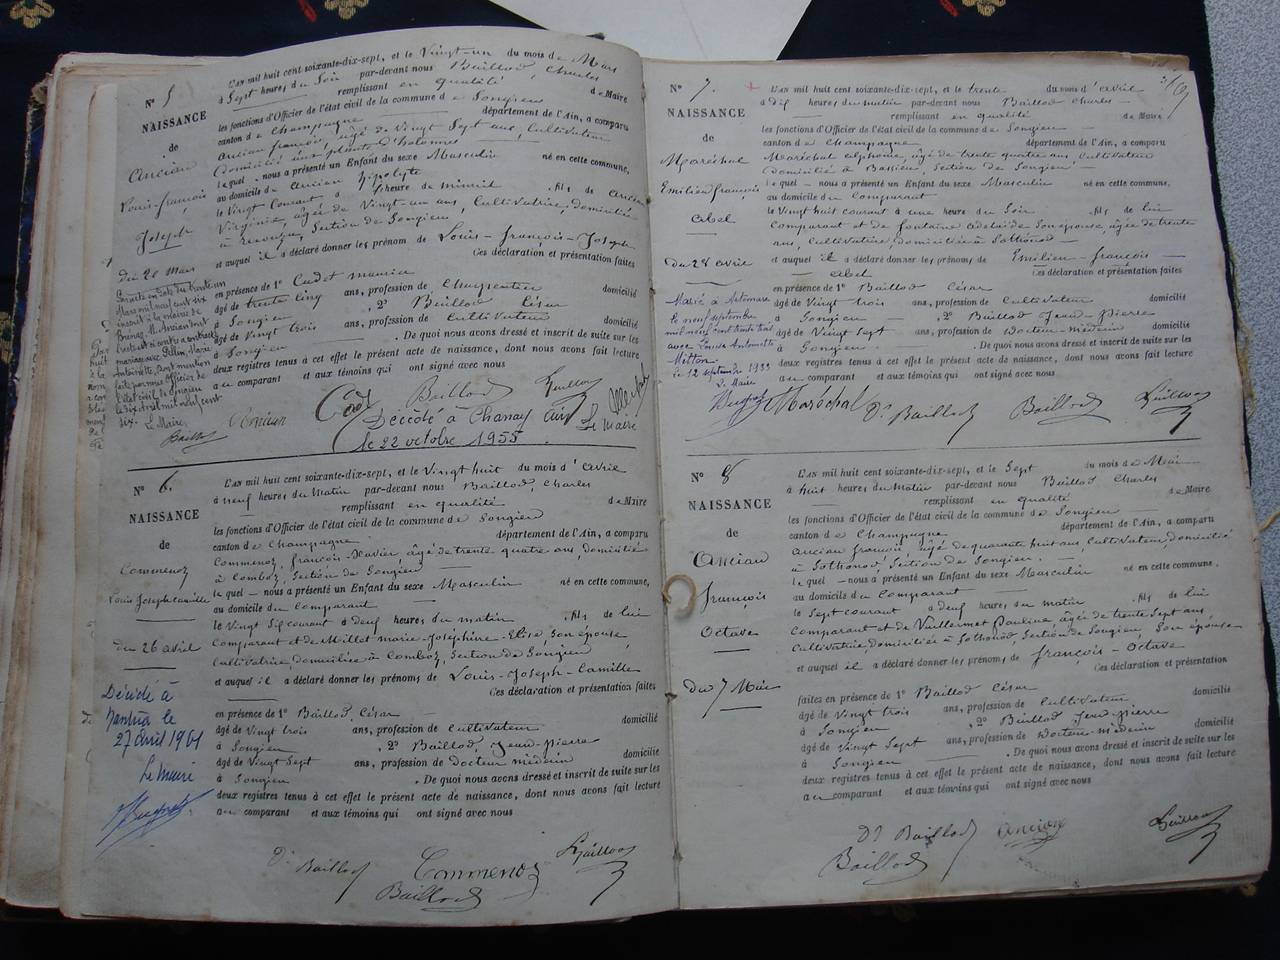 N° 5
NAISSANCE
de
Ancian
Louis-François
Joseph
du 20 Mars
L'AN mil huit cent soixante-dix-sept, et le Vingt-un du mois de Mars
à Sept heures du Soir par-devant nous Baillod, Charles
remplissant en qualité de Maire
les fonctions d'Officier de l'état civil de la commune de Songieu
canton de Champagne département de l'Ain, a comparu
Ancian françois, âgé de Vingt Sept ans, Cultivateur
Domicilié aux plants d'hotonnes
lequel nous a présenté un Enfant du sexe Masculin né en cette commune,
au domicile de Ancian hypolyte
le Vingt Courant à heure de minuit, fils de Ancian
Virginie, âgée de Vingt-un ans, Cultivatrice, domiciliée
Section de Songieu
et auquel il a déclaré donner les prénom de Louis-françois-Joseph
Ces déclaration et présentation faites
en présence de 1° Cudet maurice
âgé de trente cinq ans, profession de Charpentier domicilié
à Songieu , 2° Baillod César
âgé de Vingt trois ans, profession de Cultivateur domicilié
à Songieu . De quoi nous avons dressé et inscrit de suite sur les
deux registres tenus à cet effet le présent acte de naissance, dont nous avons fait lecture
au comparant et aux témoins qui ont signé avec nous
Le Maire,
Baillod
Ancian
Baillod
Décédé à Chanay Ain
le 22 octobre 1955
Le Maire
N° 6.
NAISSANCE
de
Commenoz
Louis Joseph Camille
du 26 avril
Décédé à
Nantua le
27 avril 1961
Le Maire
L'AN mil huit cent soixante-dix-sept, et le Vingt huit du mois d'avril
à neuf heures du Matin par-devant nous Baillod, Charles
remplissant en qualité de Maire
les fonctions d'Officier de l'état civil de la commune de Songieu
canton de Champagne département de l'Ain, a comparu
Commenoz, françois-Xavier, âgé de trente quatre ans, domicilié
à Comboz, Section de Songieu
lequel nous a présenté un Enfant du sexe Masculin né en cette commune,
au domicile du Comparant
le Vingt Six courant à deux heures du matin , fils de lui
Comparant et de Millet marie-Joséphine-Elise son épouse,
Cultivatrice, domiciliée à Comboz, Section de Songieu
et auquel il a déclaré donner les prénoms de Louis-Joseph-Camille
Ces déclaration et présentation faites
en présence de 1° Baillod, César
âgé de Vingt trois ans, profession de Cultivateur domicilié
à Songieu , 2° Baillod, Jean-Pierre
âgé de Vingt Sept ans, profession de Docteur médecin domicilié
à Songieu . De quoi nous avons dressé et inscrit de suite sur les
deux registres tenus à cet effet le présent acte de naissance, dont nous avons fait lecture
au comparant et aux témoins qui ont signé avec nous
Dr Baillod
Commenoz
Baillod
N° 7.
NAISSANCE
de
Maréchal
Emilien françois
abel
du 28 avril
Marié à Artemare
le neuf septembre
mil neuf cent trente trois
avec Louise Antoinette
Mitton
Le 12 septembre 1933
Le Maire
L'AN mil huit cent soixante-dix-sept, et le trente du mois d'avril
à dix heures du matin par-devant nous Baillod Charles
remplissant en qualité de Maire
les fonctions d'Officier de l'état civil de la commune de Songieu
canton de Champagne département de l'Ain, a comparu
Maréchal alphonse, âgé de trente quatre ans, Cultivateur
Domicilié à Bassieu, Section de Songieu
lequel nous a présenté un Enfant du sexe Masculin né en cette commune,
au domicile du Comparant
le Vingt huit courant à une heure du Soir , fils de lui
Comparant et de fontaine adelaide Son épouse, âgée de trente
ans, Cultivatrice, domiciliée à Sothonod
et auquel il a déclaré donner les prénoms de Emilien-françois
abel Ces déclaration et présentation faites
en présence de 1° Baillod César
âgé de Vingt trois ans, profession de Cultivateur domicilié
à Songieu , 2° Baillod Jean-Pierre
âgé de Vingt Sept ans, profession de Docteur-médecin domicilié
à Songieu . De quoi nous avons dressé et inscrit de suite sur les
deux registres tenus à cet effet le présent acte de naissance, dont nous avons fait lecture
au comparant et aux témoins qui ont signé avec nous
Maréchal Dr Baillod Baillod
N° 8
NAISSANCE
de
Ancian
françois
Octave
du 7 Mai
L'AN mil huit cent soixante-dix-sept, et le Sept du mois de Mai
à huit heures du Matin par-devant nous Baillod Charles
remplissant en qualité de Maire
les fonctions d'Officier de l'état civil de la commune de Songieu
canton de Champagne département de l'Ain, a comparu
Ancian françois, âgé de quarante huit ans, Cultivateur, domicilié
à Sothonod, Section de Songieu
lequel nous a présenté un Enfant du sexe Masculin né en cette commune,
au domicile du Comparant
le Sept courant à deux heures du matin , fils de lui
Comparant et de Vuillermet Pauline, âgée de trente Sept ans,
Cultivatrice, domiciliée à Sothonod, Section de Songieu, Son épouse
et auquel il a déclaré donner les prénoms de françois-Octave
Ces déclaration et présentation
faites en présence de 1° Baillod César
âgé de Vingt trois ans, profession de Cultivateur domicilié
à Songieu , 2° Baillod Jean-Pierre
âgé de Vingt Sept ans, profession de Docteur-médecin domicilié
à Songieu . De quoi nous avons dressé et inscrit de suite sur les
deux registres tenus à cet effet le présent acte de naissance, dont nous avons fait lecture
au comparant et aux témoins qui ont signé avec nous
Dr Baillod Ancian
Baillod